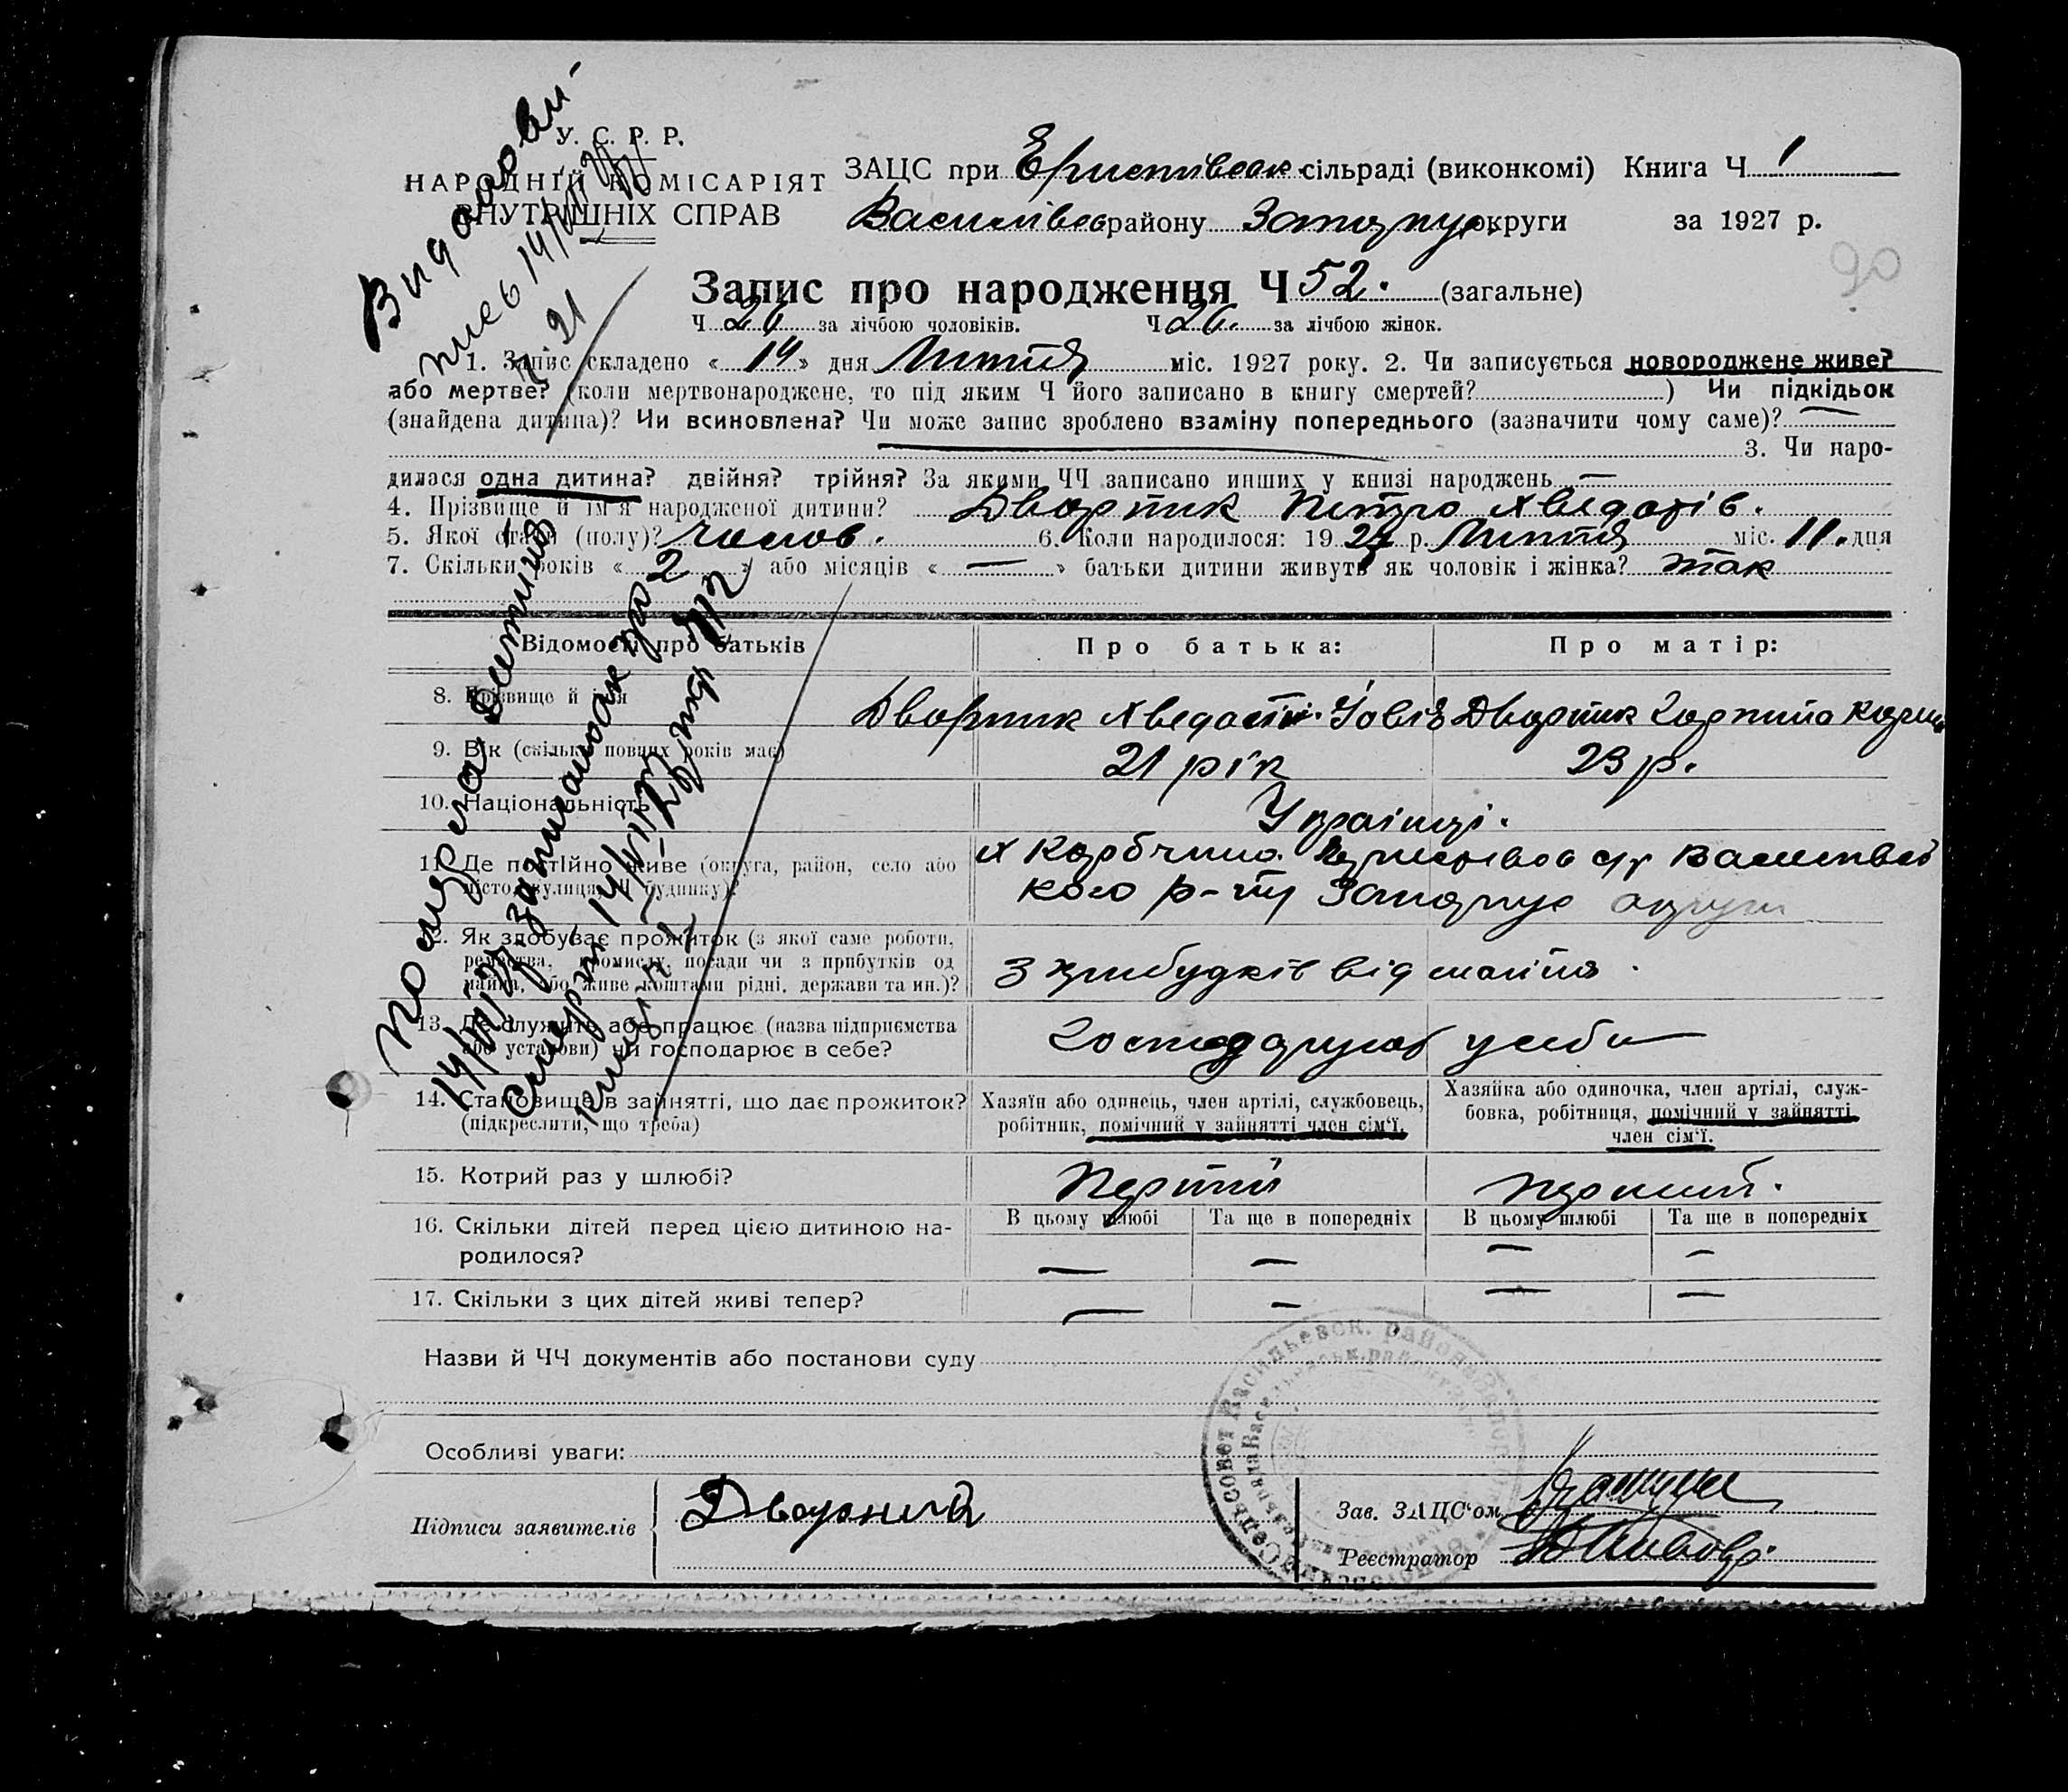 У. С. Р. Р.
НАРОДНІЙ КОМІСАРІЯТ
ВНУТРІШНІХ СПРАВ
ЗАЦС при Єристівськ. сільраді (виконкомі) Книга Ч 1
Василівськ району Запоріж. округи за 1927 р.
90
Запис про народження Ч 52. (загальне)
Ч 26 за лічбою чоловіків. Ч 26. за лічбою жінок.
1. Запис складено « 14 » дня Липня міс. 1927 року. 2. Чи записується новороджене живе?
або мертве? (коли мертвонароджене, то під яким Ч його записано в книгу смертей? ) Чи підкідьок
(знайдена дитина)? Чи всиновлена? Чи може запис зроблено взаміну попереднього (зазначити чому саме)? —
3. Чи наро-
дилася одна дитина? двійня? трійня? За якими ЧЧ записано инших у книзі народжень —
4. Прізвище й ім'я народженої дитини? Дворник Петро
5. Якої стати (полу)? чолов. 6. Коли народилося: 19 27 р. Липня міс. 11. дня
7. Скільки років « 2 » або місяців « — » батьки дитини живуть як чоловік і жінка? так
Відомості про батьків Про батька: Про матір:
8. Прізвище й ім'я Дворник Дворник Горпина
9. Вік (скільки повних років має) 21 рік 23 р.
10. Національність Українці.
11. Де постійно живе (округа, район, село або
місто, вулиця, Ч будинку)?
с/р Василівсь
кого р-ну Запоріж округи
12. Як здобуває прожиток (з якої саме роботи,
ремества, промислу, посади чи з прибутків од
майна, або живе коштами рідні, держави та ин.)?
З прибутків від майна.
13. Де служить або працює (назва підприємства
або установи) чи господарює в себе?
Господарює у себе
14. Становище в зайнятті, що дає прожиток?
(підкреслити, що треба)
Хазяїн або одинець, член артілі, службовець,
робітник, помічний у зайнятті член сім'ї.
Хазяйка або одиночка, член артілі, служ-
бовка, робітниця, помічний у зайнятті
член сім'ї.
15. Котрий раз у шлюбі? Перший Перший.
16. Скільки дітей перед цією дитиною на-
родилося?
В цьому шлюбі Та ще в попередніх В цьому шлюбі Та ще в попередніх
— — — —
17. Скільки з цих дітей живі тепер? — — — —
Назви й ЧЧ документів або постанови суду
Особливі уваги:
Підписи заявителів Дворник
Зав. ЗАЦС'ом
Реєстратор